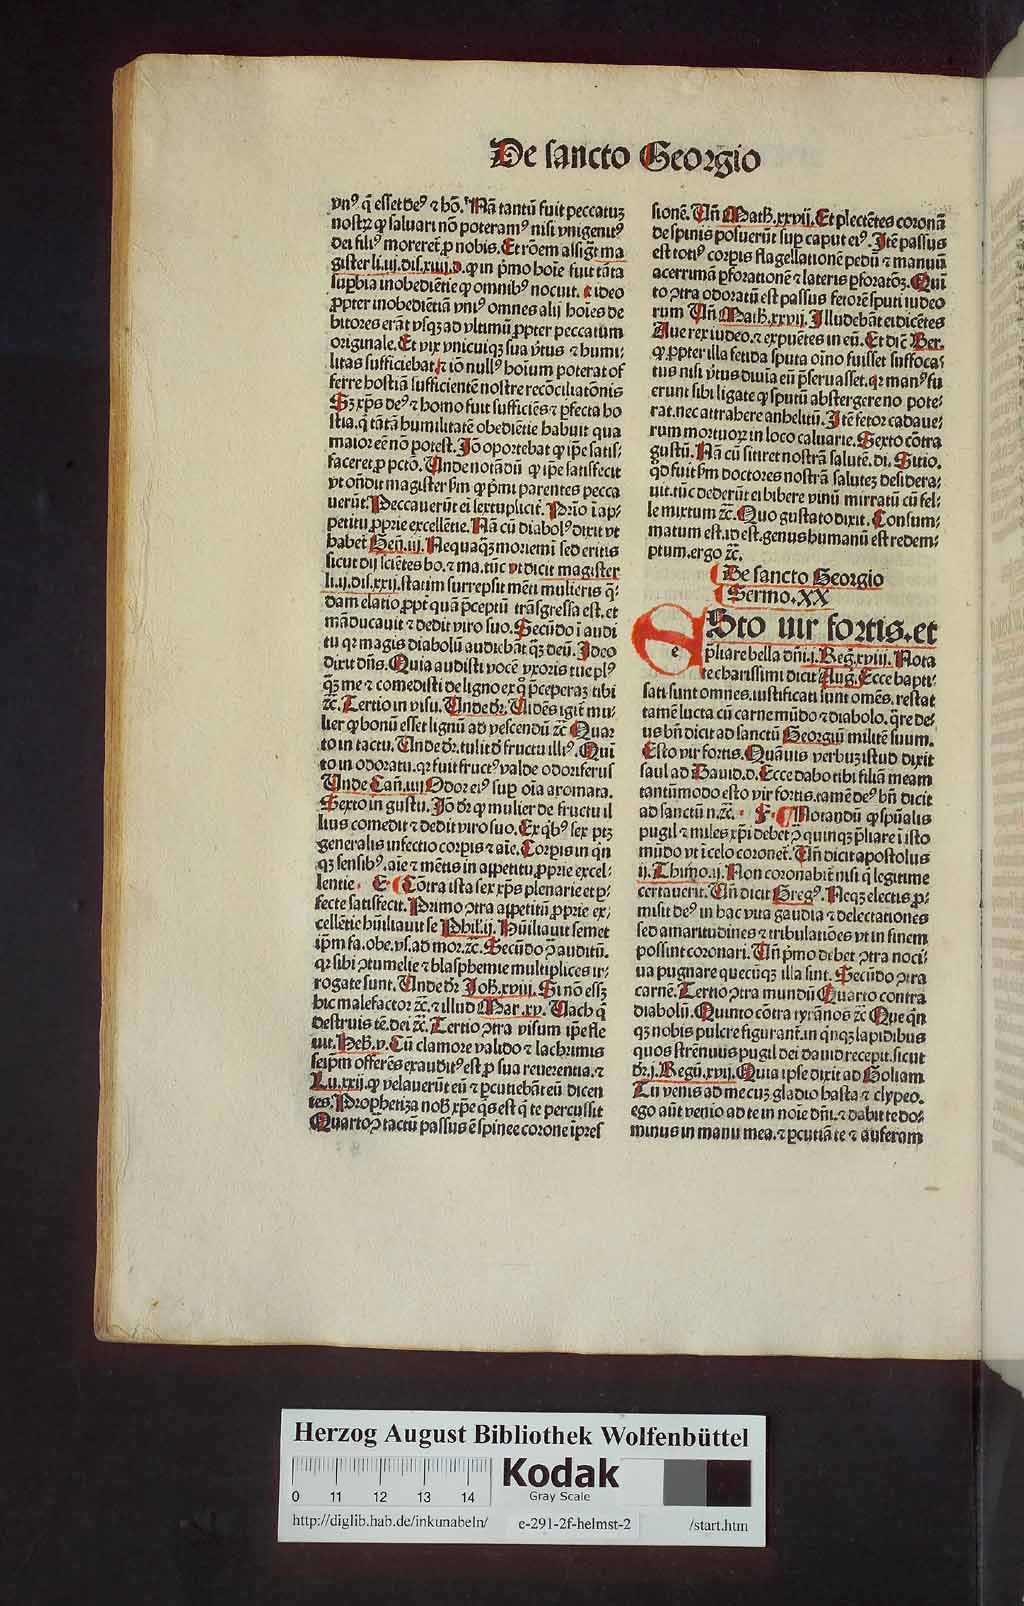 De sancto Georgio
vnꝰ q̃ esset deꝰ ⁊ hõ. Nã tantũ fuit peccatuʒ
nostꝝ ꝙ saluari nõ poteramꝰ nisi vnigenitꝰ
dei filiꝰ moreret̃ ꝓ nobis. Et rõem assigt̃ ma
gister li.iij.dis.xviij.d. ꝙ in p̃mo hoĩe fuit tãta
suꝑbia inobediẽtie ꝙ omnibꝰ nocuit. ⁊ ideo
ꝓpter inobediẽtiã vniꝰ omnes alij hoĩes de
bitores erãt vsqʒ ad vltimũ ꝓpter peccatum
originale. Et vix vnicuiqʒ sua v̓tus ⁊ humi-
litas sufficiebat. ⁊ iõ nullꝰ hoium poterat of
ferre hostiã sufficientẽ nostre recõciliatõnis
Sʒ xp̃s deꝰ ⁊ homo fuit sufficiẽs ⁊ ꝑfecta ho
stia. q̃ tãtã humilitatẽ obediẽtie habuit qua
maior eẽ nõ potest. Jõ oportebat ꝙ ip̃e satis-
faceret ꝓ pctõ. Unde notãdũ ꝙ ip̃e satisfecit
vt oñdit magister s̃m ꝙ p̃mi parentes pecca
uerũt. Peccauerũt eĩ sextuplicit̓. Prĩo ĩ ap-
petitu ꝓprie excellẽtie. Nã cũ diabolꝰ dixit vt
habet̃ Geñ.iij. Nequaqʒ moriemĩ sed eritis
sicut dij sciẽtes bo. ⁊ ma. tũc vt dicit magister
li.ij.dis.xxij. statim surrepsit mẽti mulieris q̃-
dam elatio ꝓpt̓ quã p̃ceptũ trãsgressa est. et
mãducauit ⁊ dedit viro suo. Secũdo ĩ audi
tu qꝛ magis diabolũ audiebãt qʒ deũ. Jdeo
dixit dñs. Quia audisti vocẽ vxoris tue plꝰ
qʒ me ⁊ comedisti de ligno ex q̊ p̃ceperaʒ tibi
⁊c̃. Tertio in visu. Unde dr̃. Uidẽs igit̃ mu-
lier ꝙ bonũ esset lignũ ad vescendũ ⁊c̃ Quar
to in tactu. Unde dr̃. tulit d̓ fructu illiꝰ. Quĩ
to in odoratu. qꝛ fuit fructꝰ valde odoriferus
Unde Cañ.iiij Odor eiꝰ suꝑ oĩa aromata.
Sexto in gustu. Jõ dr̃ ꝙ mulier de fructu il
lius comedit ⁊ dedit viro suo. Ex q̓bꝰ sex ptʒ
generalis infectio corꝑis ⁊ aĩe. Corꝑis in q̓n
qʒ sensibꝰ. aĩe ⁊ mẽtis in appetitu ꝓprie excel-
lentie. E. Cõtra ista sex xp̃s plenarie et ꝑ-
fecte satisfecit. Primo ↄtra appetitũ ꝓprie ex-
cellẽtie hũiliauit se Phil̓.ij. Hũiliauit semet
ip̃m fa. obe. vs. ad mor. ⁊c̃. Secũdo ↄ̃ auditũ.
qꝛ sibi ↄtumelie ⁊ blasphemie multiplices ir-
rogate sunt. Unde dr̃ Joh̃.xviij. Si nõ essʒ
hic malefactor ⁊c̃. ⁊ illud Mar.xv. Uach q̓
destruis tẽ. dei ⁊c̃. Tertio ↄtra visum ip̃e fle
uit. Heb̃.v. Cũ clamore valido ⁊ lachrimis
seip̃m offerẽs exauditꝰ est ꝓ sua reuerentia. ⁊
Lu.xxij. ꝙ velauerũt eũ ⁊ ꝑcutiebãt eũ dicen
tes. Prophetiza nob̃ xp̃e q̓s est q̓ te percussit
Quarto ↄ̃ tactũ passus ẽ spinee corone ĩpres
sionẽ. Uñ Math̃.xxvij. Et plectẽtes coronã
de spinis posuerũt suꝑ caput eiꝰ. Jtẽ passus
est totiꝰ corꝑis flagellationẽ pedũ ⁊ manuũ
acerrimã ꝑforationẽ ⁊ lateris ꝑforatõʒ. Quĩ
to ↄtra odoratũ est passus fetorẽ sputi iudeo
rum Uñ Math̃.xxvij. Jlludebãt ei dicẽtes
Aue rex iudeo. ⁊ expuẽtes in eũ. Et dic̃ Ber.
ꝙ ꝓpter illa fetida sputa oĩno fuisset suffoca-
tus nisi v̓tus diuĩa eũ p̃seruasset. qꝛ manꝰ fu
erunt sibi ligate ꝙ sputũ abstergere no pote-
rat. nec attrahere anhelitũ. Jtẽ fetor cadaue-
rum mortuoꝝ in loco caluarie. Sexto cõtra
gustũ. Nã cũ sitiret nostrã salutẽ. di. Sitio.
qd̓ fuit s̃m doctores nostrã saluteʒ desidera-
uit. tũc dederũt ei bibere vinũ mirratũ cũ fel-
le mixtum ⁊c̃. Quo gustato dixit. Consum-
matum est. id est. genus humanũ est redem-
ptum. ergo ⁊c̃.
De sancto Georgio
Sermo. XX
eSto uir fortis. et
p̃liare bella dñi. j. Reg̃.xviij. Nota
te charissimi dicit Aug̃. Ecce bapti-
sati sunt omnes. iustificati sunt omẽs. restat
tamẽ lucta cũ carne mũdo ⁊ diabolo. q̃re de-
us bñ dicit ad sanctũ Georgiũ militẽ suum.
Esto vir fortis. Quãuis verbuʒ istud dixit
saul ad Dauid. d. Ecce dabo tibi filiã meam
tantũmodo esto vir fortis. tamẽ deꝰ bñ dicit
ad sanctũ n. ⁊c̃. F. Notandũ ꝙ sp̃ualis
pugil ⁊ miles xp̃i debet ↄ̃ quinqʒ p̃liare ĩ isto
mũdo vt ĩ celo coronet̃. Uñ dicit apostolus
ij. Thimo.ij. Non coronabit̃ nisi q̓ legitime
certauerit. Uñ dicit Gregꝰ. Neqʒ electis ꝓ-
misit deꝰ in hac vita gaudia ⁊ delectationes
sed amaritudines ⁊ tribulatiões vt in finem
possint coronari. Uñ p̃mo debet ↄtra noci-
ua pugnare quecũqʒ illa sint. Secũdo ↄtra
carnẽ. Tertio ↄtra mundũ Quarto contra
diabolũ. Quinto cõtra tyrãnos ⁊c̃ Que q̓n
qʒ nobis pulcre figurant̃. in q̓nqʒ lapidibus
quos strẽnuus pugil dei dauid recepit. sicut
dr̃. j. Regũ.xvij. Quia ipse dixit ad Goliam
Tu venis ad me cuʒ gladio hasta ⁊ clypeo.
ego aũt venio ad te in noĩe dñi. ⁊ dabit te do-
minus in manu mea. ⁊ ꝑcutiã te ⁊ auferam
Herzog August Bibliothek Wolfenbüttel
0 11 12 13 14
Kodak
Gray Scale
http://diglib.hab.de/inkunabeln/ e-291-2f-helmst-2 /start.htm